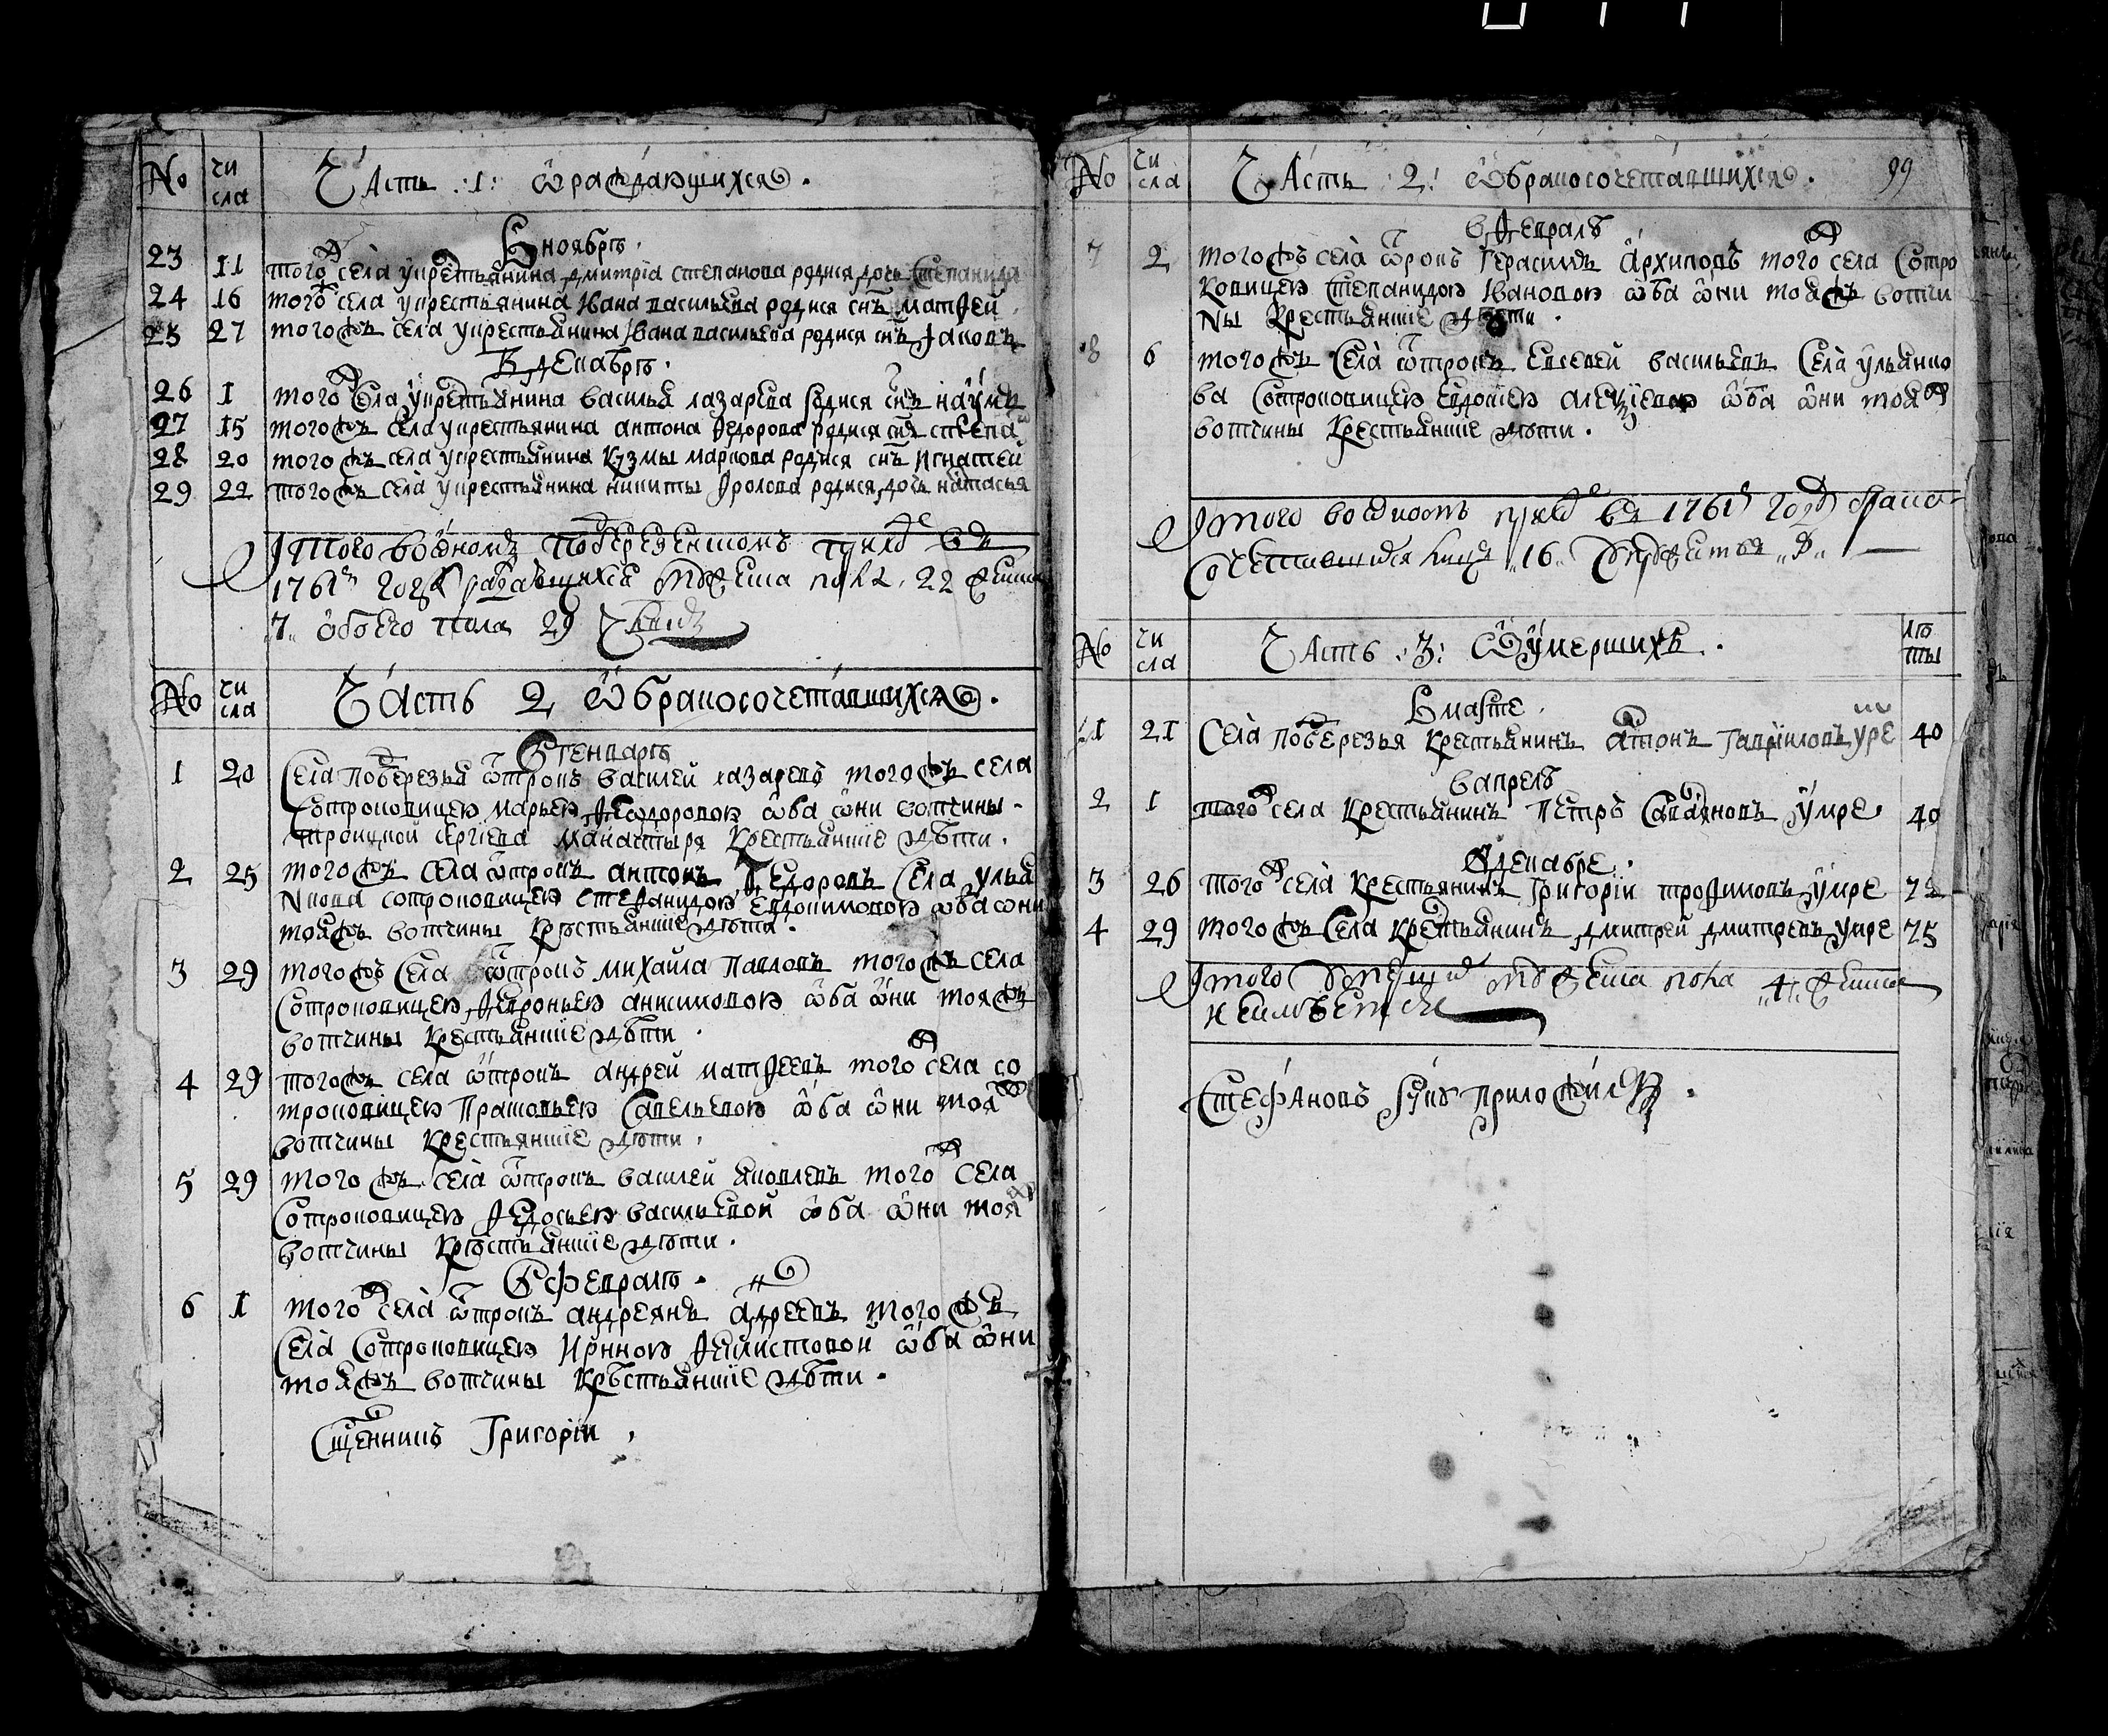 No чи сла Часть :1: ѿ раждающихся.
В ноябрѣ.
23 11 того ж села у крестьянина дмитрїа степанова родися дочь Степанида
24 16 того ж села у крестьянина Ивана васильева родися снъ матѳей
25 27 тогожъ села у крестьянина Ивана васильева родися снъ Iаковъ
В декабрѣ.
26 1 того ж села у крестьянина василья лазарева родися снъ наумъ
27 15 тогожъ села у крестьянина антона ѳедорова родися снъ степа
28 20 тогожъ села у крестьянина кузмы маркова родися снъ Игнатей
29 22 тогожъ села у крестьянина никиты ѳролова родися дочь настасья
Итого в оном поберезенском приходе въ
1761м году раждающихся мужеска пола 22 женска
7 обоего пола 29 члвкъ
No чи сла Часть 2 ѿ бракосочетавшихся.
В генварѣ
1 20 Села поберезья ѿтрокъ василей лазаревъ тогожъ села
Сотроковицею марьею ѳеодоровою ѡба ѡни вотчины
троицкой сергіева манастыря крестьянскїе дѣти.
2 25 тогожъ села ѿтрокъ антонъ ѳедоровъ Села улья
нкова сотроковицею стеѳанидою евдокимовою ѡба ѡни
тояжъ вотчины крѣстьянскїе дѣти.
3 29 тогожъ села ѿтрокъ михайла павловъ тогожъ села
Сотроковицею ѳевроньею анисимовою ѡба ѡни тояжъ
вотчины крестьянскїе дѣти.
4 29 тогожъ села ѿтрокъ андрей матѳеевъ того ж села со
троковицею Прасковьею Савельевою ѡба ѡни тоя ж
вотчины крестьянскїе дѣти.
5 29 тогожъ села ѿтрокъ василей яковлевъ того ж села
Сотроковицею ѳедосьею васильевой ѡба ѡни тоя ж
вотчины крѣстьянскїе дѣти.
В февралѣ.
6 1 того ж села ѿтрокъ андреянъ адреевъ тогожъ
Села Сотроковицею Ириною ѳеѡктистовой ѡба ѡни
тояжъ вотчины крѣстьянскїе дѣти.
Сщенникъ Григорїи
No чи сла Часть :2: ѿ бракосочетавшихся. 99
в ѳевралѣ
7 2 тогожъ села ѿрокъ Герасимъ архиповъ того ж села Сотро
ковицею Степанидою Ивановою ѡба ѡни тояжъ вотчи
ны крестьянскїе дѣти.
8 6 тогожъ Села ѿтрокъ Евсевей васильевъ Села ульянко
ва Сотроковицею Евдокїею алеѯїевою ѡба ѡни тоя ж
вотчины крестьянскїе дѣти.
Итого в оном приходе въ 1761м году брако
сочетавшихся лицъ 16
No чи сла Часть :3: ѿ умершихъ. лѣ ты
В марте.
1 21 Села поберезья крестьянинъ антонъ Гаврїиловъ умре 40
в апрелѣ
2 1 того ж села крестьянинъ Петръ умре 40
в декабре.
3 26 того ж села крестьянинъ Григорїи троѳимовъ умре 72
4 29 тогожъ Села крестьянинъ дмитрей дмитревъ умре 75
Итого умерших мужеска пола 4 женска
не имѣется
Стефановъ руку приложилъ.